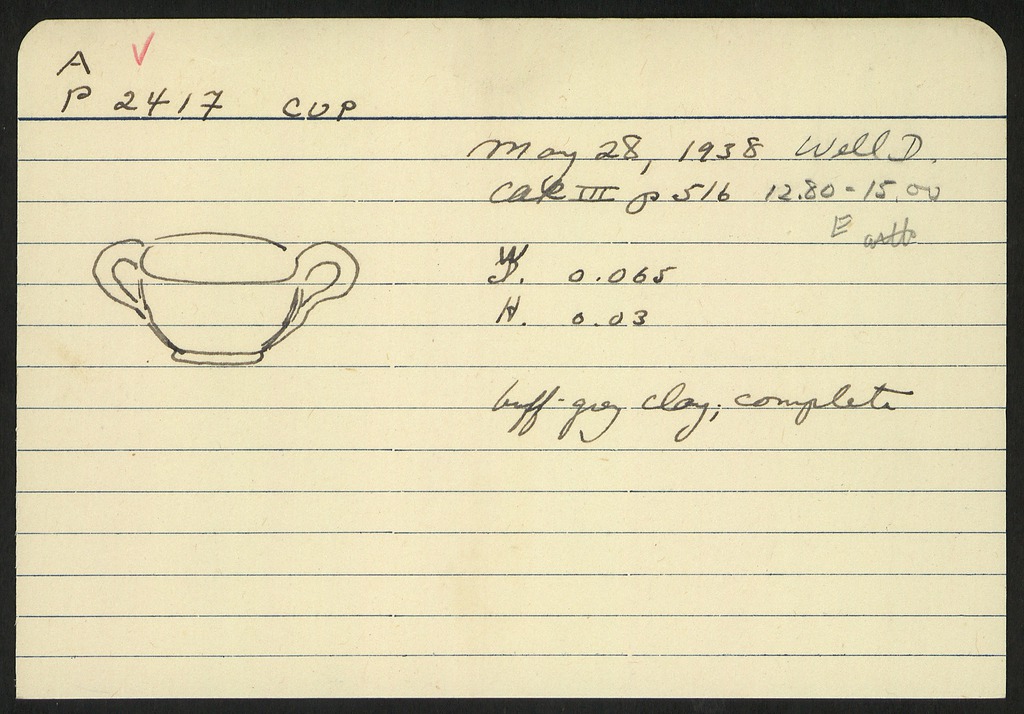 A
P 2417 CUP
May 28, 1938 Well D.
CAR III p 516 12.80 - 15.00
E
W. 0.065
H. 0.03
buff-grey clay; complete